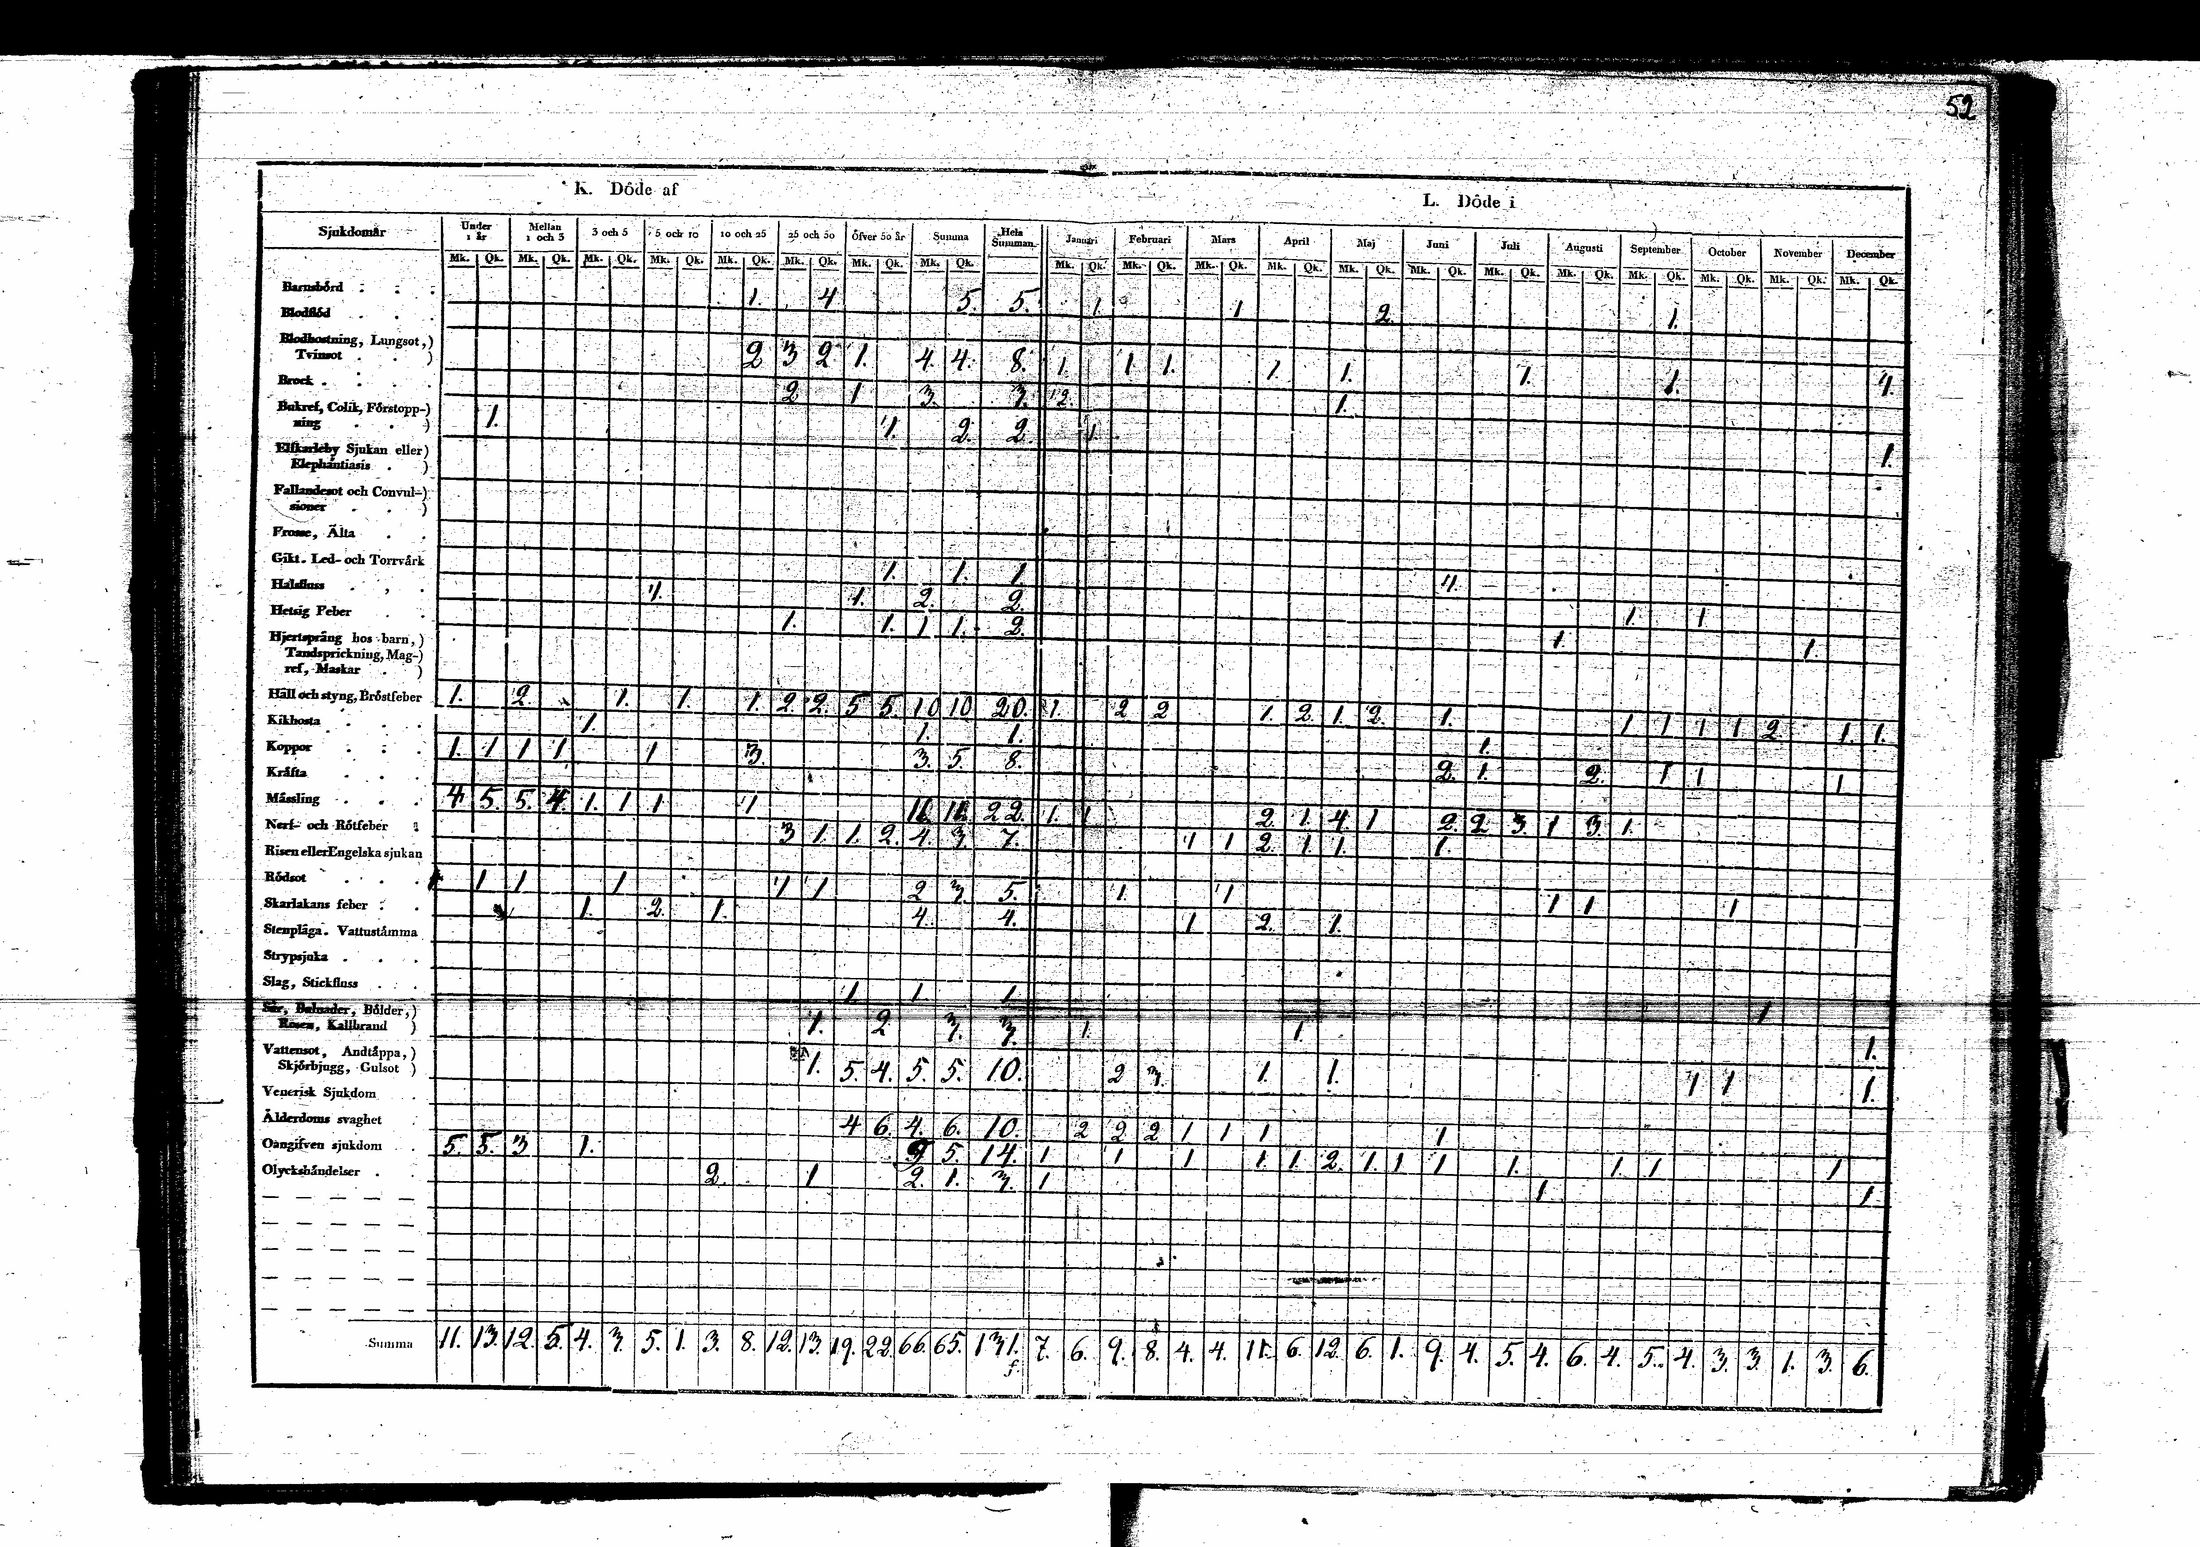 52
K. Döde af L. Döde i
Sjukdomar Under 1 år Mellan 1 och 3 3 och 5 5 och 10 10 och 25 25 och 50 öfver 50 år Summa Hela Summan Januari Februari Mars April Maj Juni Juli Augusti September October November December
Mk. Qk. Mk. Qk. Mk. Qk. Mk. Qk. Mk. Qk. Mk. Qk. Mk. Qk. Mk. Qk. Mk. Qk. Mk. Qk. Mk. Qk. Mk. Qk. Mk. Qk. Mk. Qk. Mk. Qk. Mk. Qk. Mk. Qk. Mk. Qk. Mk. Qk. Mk. Qk.
Barnsbörd 1. 4 5. 5. 1. 1 2. 1.
Blodflöd
Blodhostning, Lungsot,)
Tvinsot ) 2 3 2 1. 4. 4. 8. 1. 1 1. 1. 1. 1. 1. 1.
Brock 2 1 3. 3. 2. 1.
Bukref, Colik, Förstopp-)
ning ) 1. 1. 2. 2 1. 1.
Elfkarleby Sjukan eller)
Elephantiasis )
Fallandesot och Convul-)
sioner )
Frosse, Älta
Gikt. Led- och Torrvärk 1. 1. 1. 1.
Halsfluss 1. 1. 2. 2. 1. 1
Hetsig Feber 1. 1. 1 1. 2. 1. 1.
Hjertspräng hos barn,)
Tandsprickning, Mag-)
ref, Maskar )
Håll och styng, Bröstfeber 1. 2. 1. 1. 1. 2. 2. 5 5. 10 10 20. 1. 2 2 1. 2. 1. 2. 1. 1 1 1 1 2. 1. 1.
Kikhosta 1. 1. 1. 1.
Koppor 1. 1 1 1 1 3. 3. 5. 8. 2. 1. 2. 1 1 1
Kräfta
Mässling 4 5. 5. 4. 1. 1 1 1 11. 11. 22. 1. 1 2. 1. 4. 1 2. 2 3. 1 3. 1.
Nerf- och Rötfeber 3 1. 1. 2. 4. 3. 7. 1 1 2. 1 1. 1.
Risen eller Engelska sjukan
Rödsot 1 1 1 1 1 2 3. 5. 1. 1 1 1 1
Skarlakans feber 1. 2. 1. 4. 4. 1 2. 1.
Stenplåga. Vattustämma
Strypsjuka
Slag, Stickfluss 1. 1. 1 1
Sår, Bulnader, Bölder,)
Rosen, Kallbrand ) 1. 2 3. 3. 1. 1. 1.
Vattensot, Andtäppa,)
Skjörbjugg, Gulsot ) 1. 5. 4. 5. 5. 10. 2 3. 1. 1. 1 1 1.
Venerisk Sjukdom
Ålderdoms svaghet 4 6. 4. 6. 10. 2 2 2 1 1 1 1
Oangifven sjukdom 5. 5. 3 1. 9 5. 14. 1 1 1 1. 1. 2. 1. 1 1 1. 1 1 1
Olyckshändelser 2. 1 2. 1. 3. 1 1 1.
Summa 11. 13. 12. 5. 4. 3. 5. 1. 3. 8. 12. 13. 19. 22. 66. 65. 131. 7. 6. 9. 8. 4. 4. 11. 6. 12. 6. 1. 9. 4. 5. 4. 6. 4. 5. 4. 3. 3. 1. 3. 6.